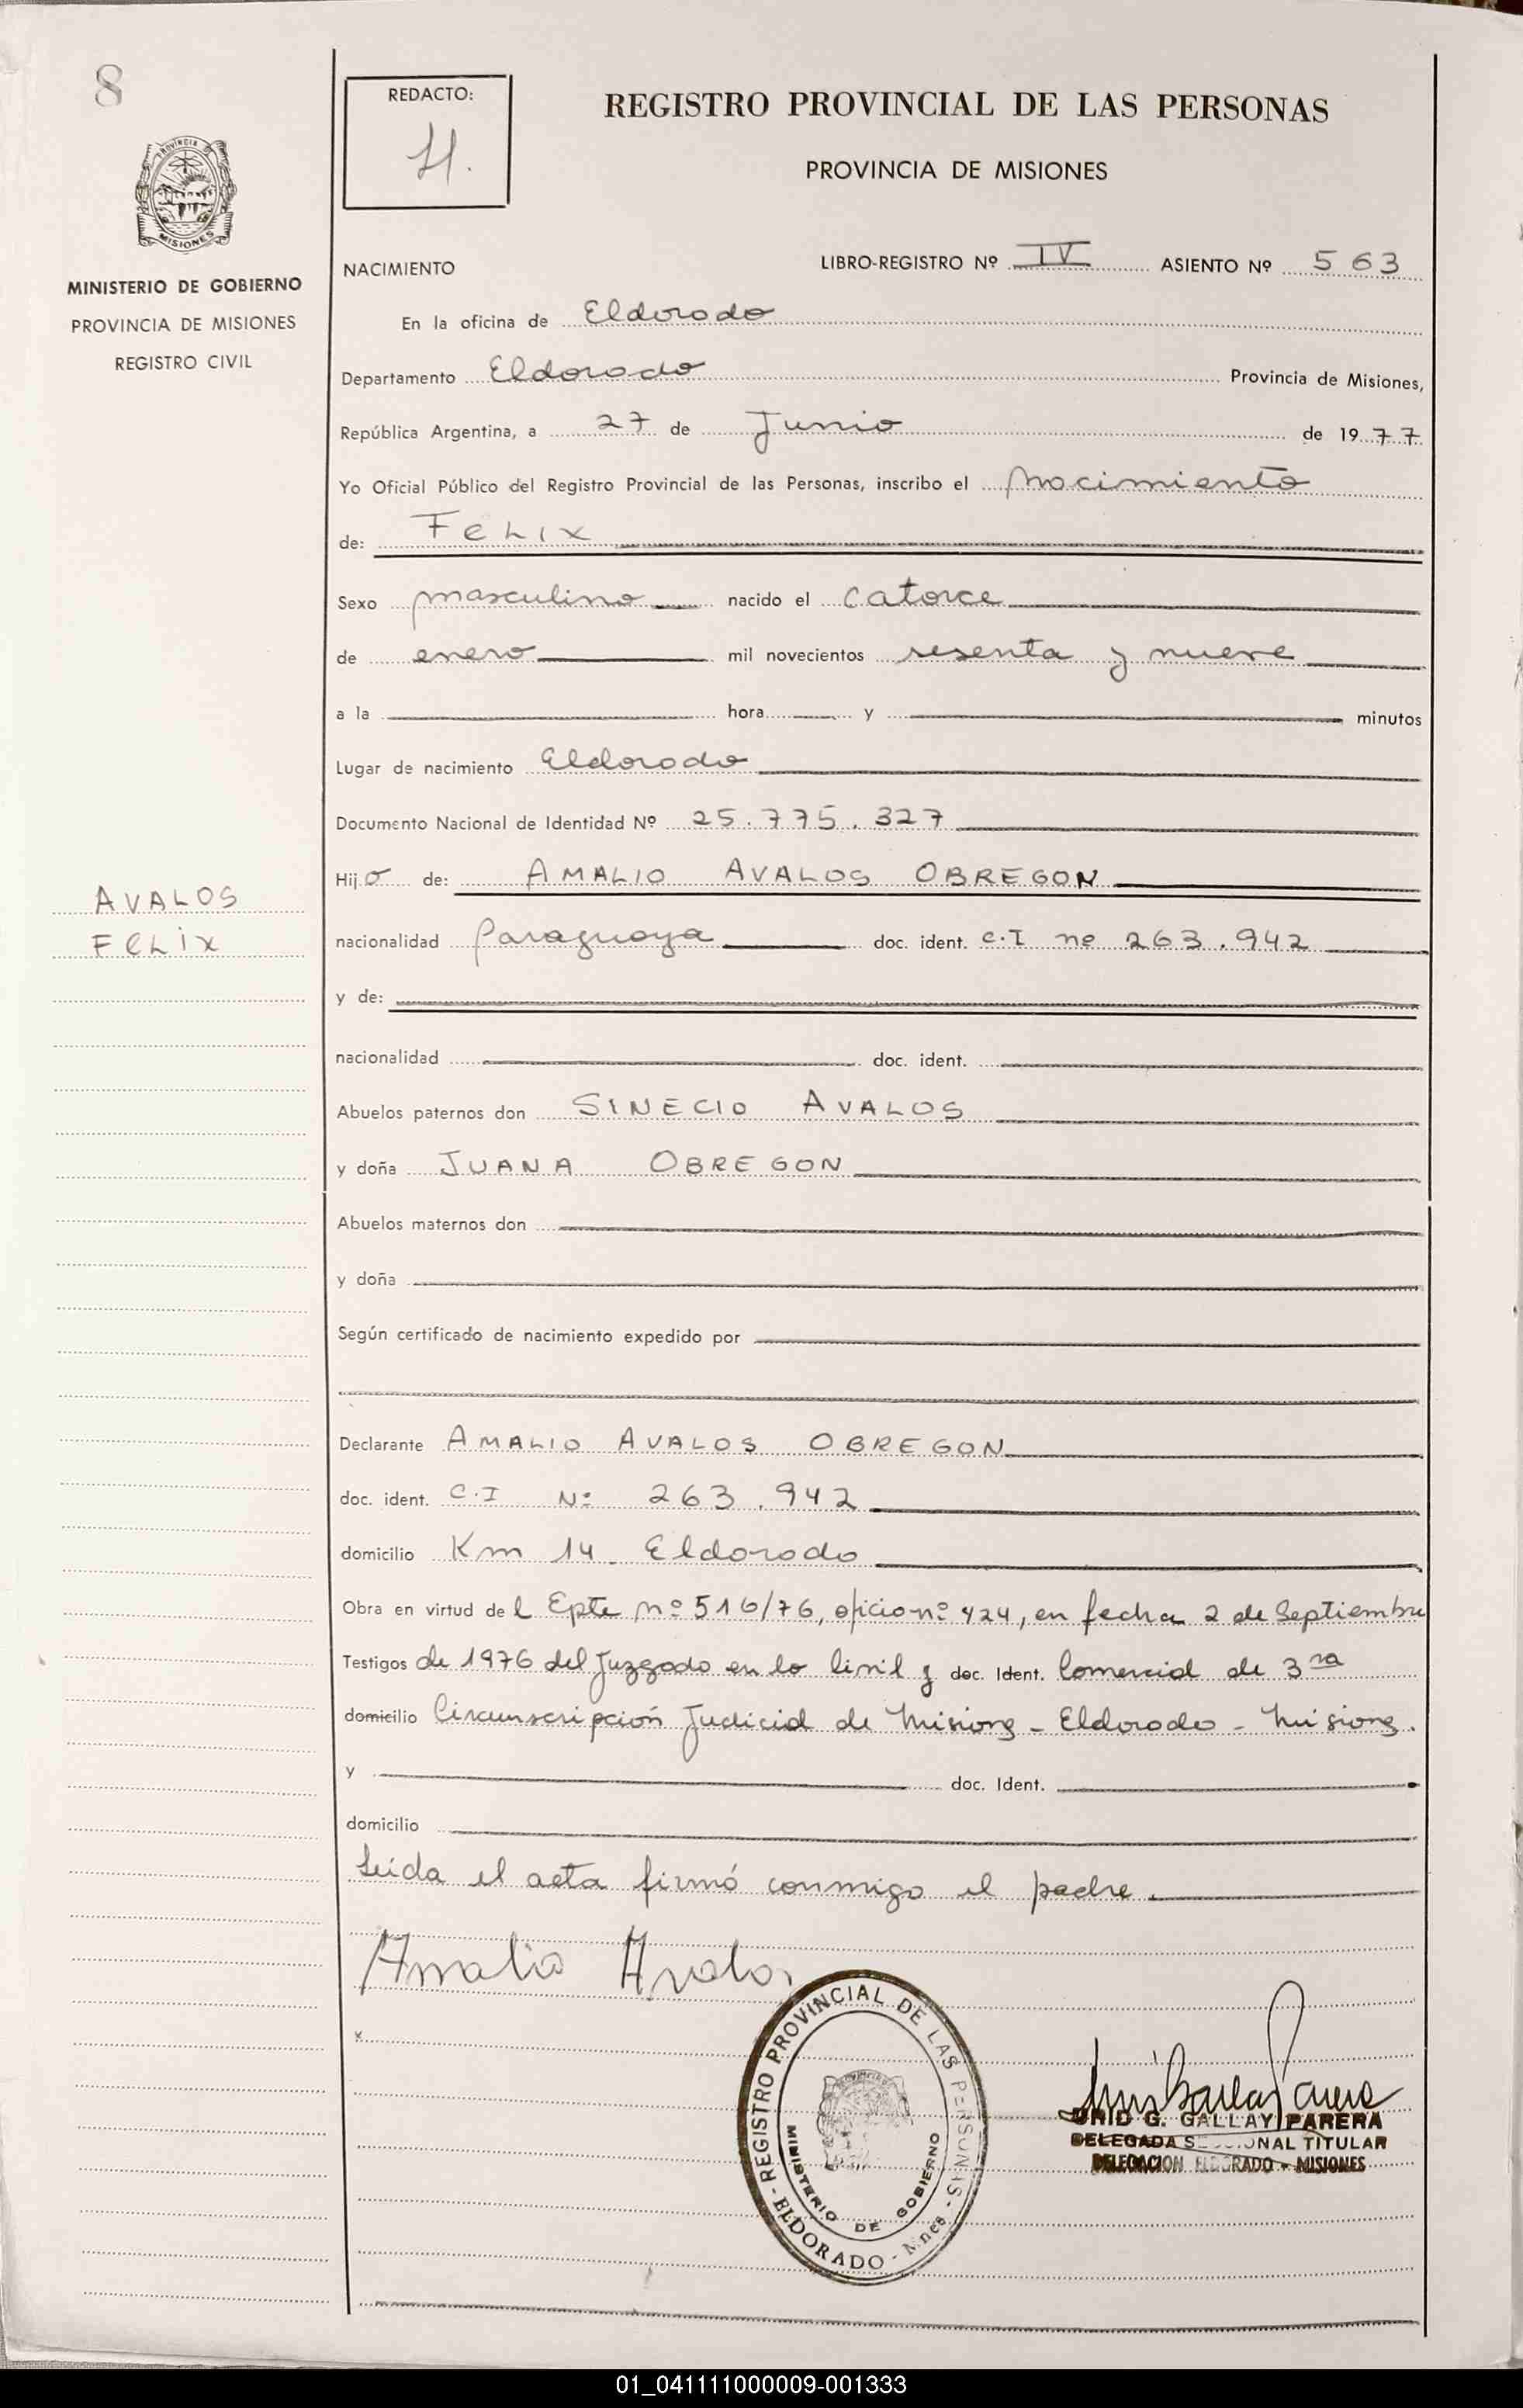 8
REDACTO:
H.
REGISTRO PROVINCIAL DE LAS PERSONAS
PROVINCIA DE MISIONES
PROVINCIA DE
MISIONES
MINISTERIO DE GOBIERNO
PROVINCIA DE MISIONES
REGISTRO CIVIL
NACIMIENTO LIBRO-REGISTRO Nº IV ASIENTO Nº 563
En la oficina de Eldorado
Departamento Eldorado Provincia de Misiones,
República Argentina, a 27 de Junio de 1977
Yo Oficial Público del Registro Provincial de las Personas, inscribo el nacimiento
de: FELIX
Sexo masculino nacido el catorce
de enero mil novecientos sesenta y nueve
a la hora y minutos
Lugar de nacimiento Eldorado
Documento Nacional de Identidad Nº 25.775.327
Hijo de: AMALIO AVALOS OBREGON
AVALOS
FELIX
nacionalidad Paraguaya doc. ident. C.I nº 263.942
y de:
nacionalidad doc. ident.
Abuelos paternos don SINECIO AVALOS
y doña JUANA OBREGON
Abuelos maternos don
y doña
Según certificado de nacimiento expedido por
Declarante AMALIO AVALOS OBREGON
doc. ident. C.I Nº 263.942
domicilio Km 14 Eldorado
Obra en virtud del Epte nº 516/76, oficio nº 424, en fecha 2 de Septiembre
Testigos de 1976 del Juzgado en lo Civil y doc. Ident. Comercial de 3ra
domicilio Circunscripción Judicial de Misiones - Eldorado - Misiones.
y doc. Ident.
domicilio
Leída el acta firmó conmigo el padre.
Amalio Avalos
REGISTRO PROVINCIAL DE LAS PERSONAS - ELDORADO - Mnes -
MINISTERIO DE GOBIERNO
G. GALLAY PARERA
DELEGADA TITULAR
DELEGACION ELDORADO - MISIONES
01_041111000009-001333